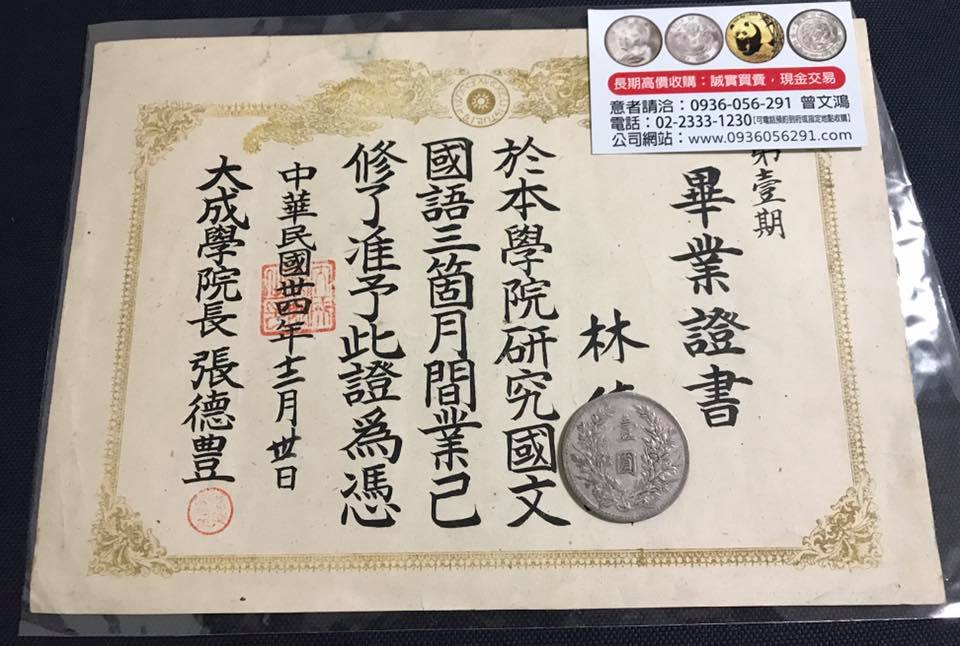 長期高價收購：誠實買賣，現金交易
意者請洽：0936-056-291 曾文鴻
電話：02-2333-1230【可電話預約到府或指定地點收購】
公司網站：www.0936056291.com
第壹期
畢業證書
林
於本學院研究國文
國語三箇月間業已
修了准予此證爲憑
中華民國卅四年十二月卅日
大成學院長 張德豊
壹圓